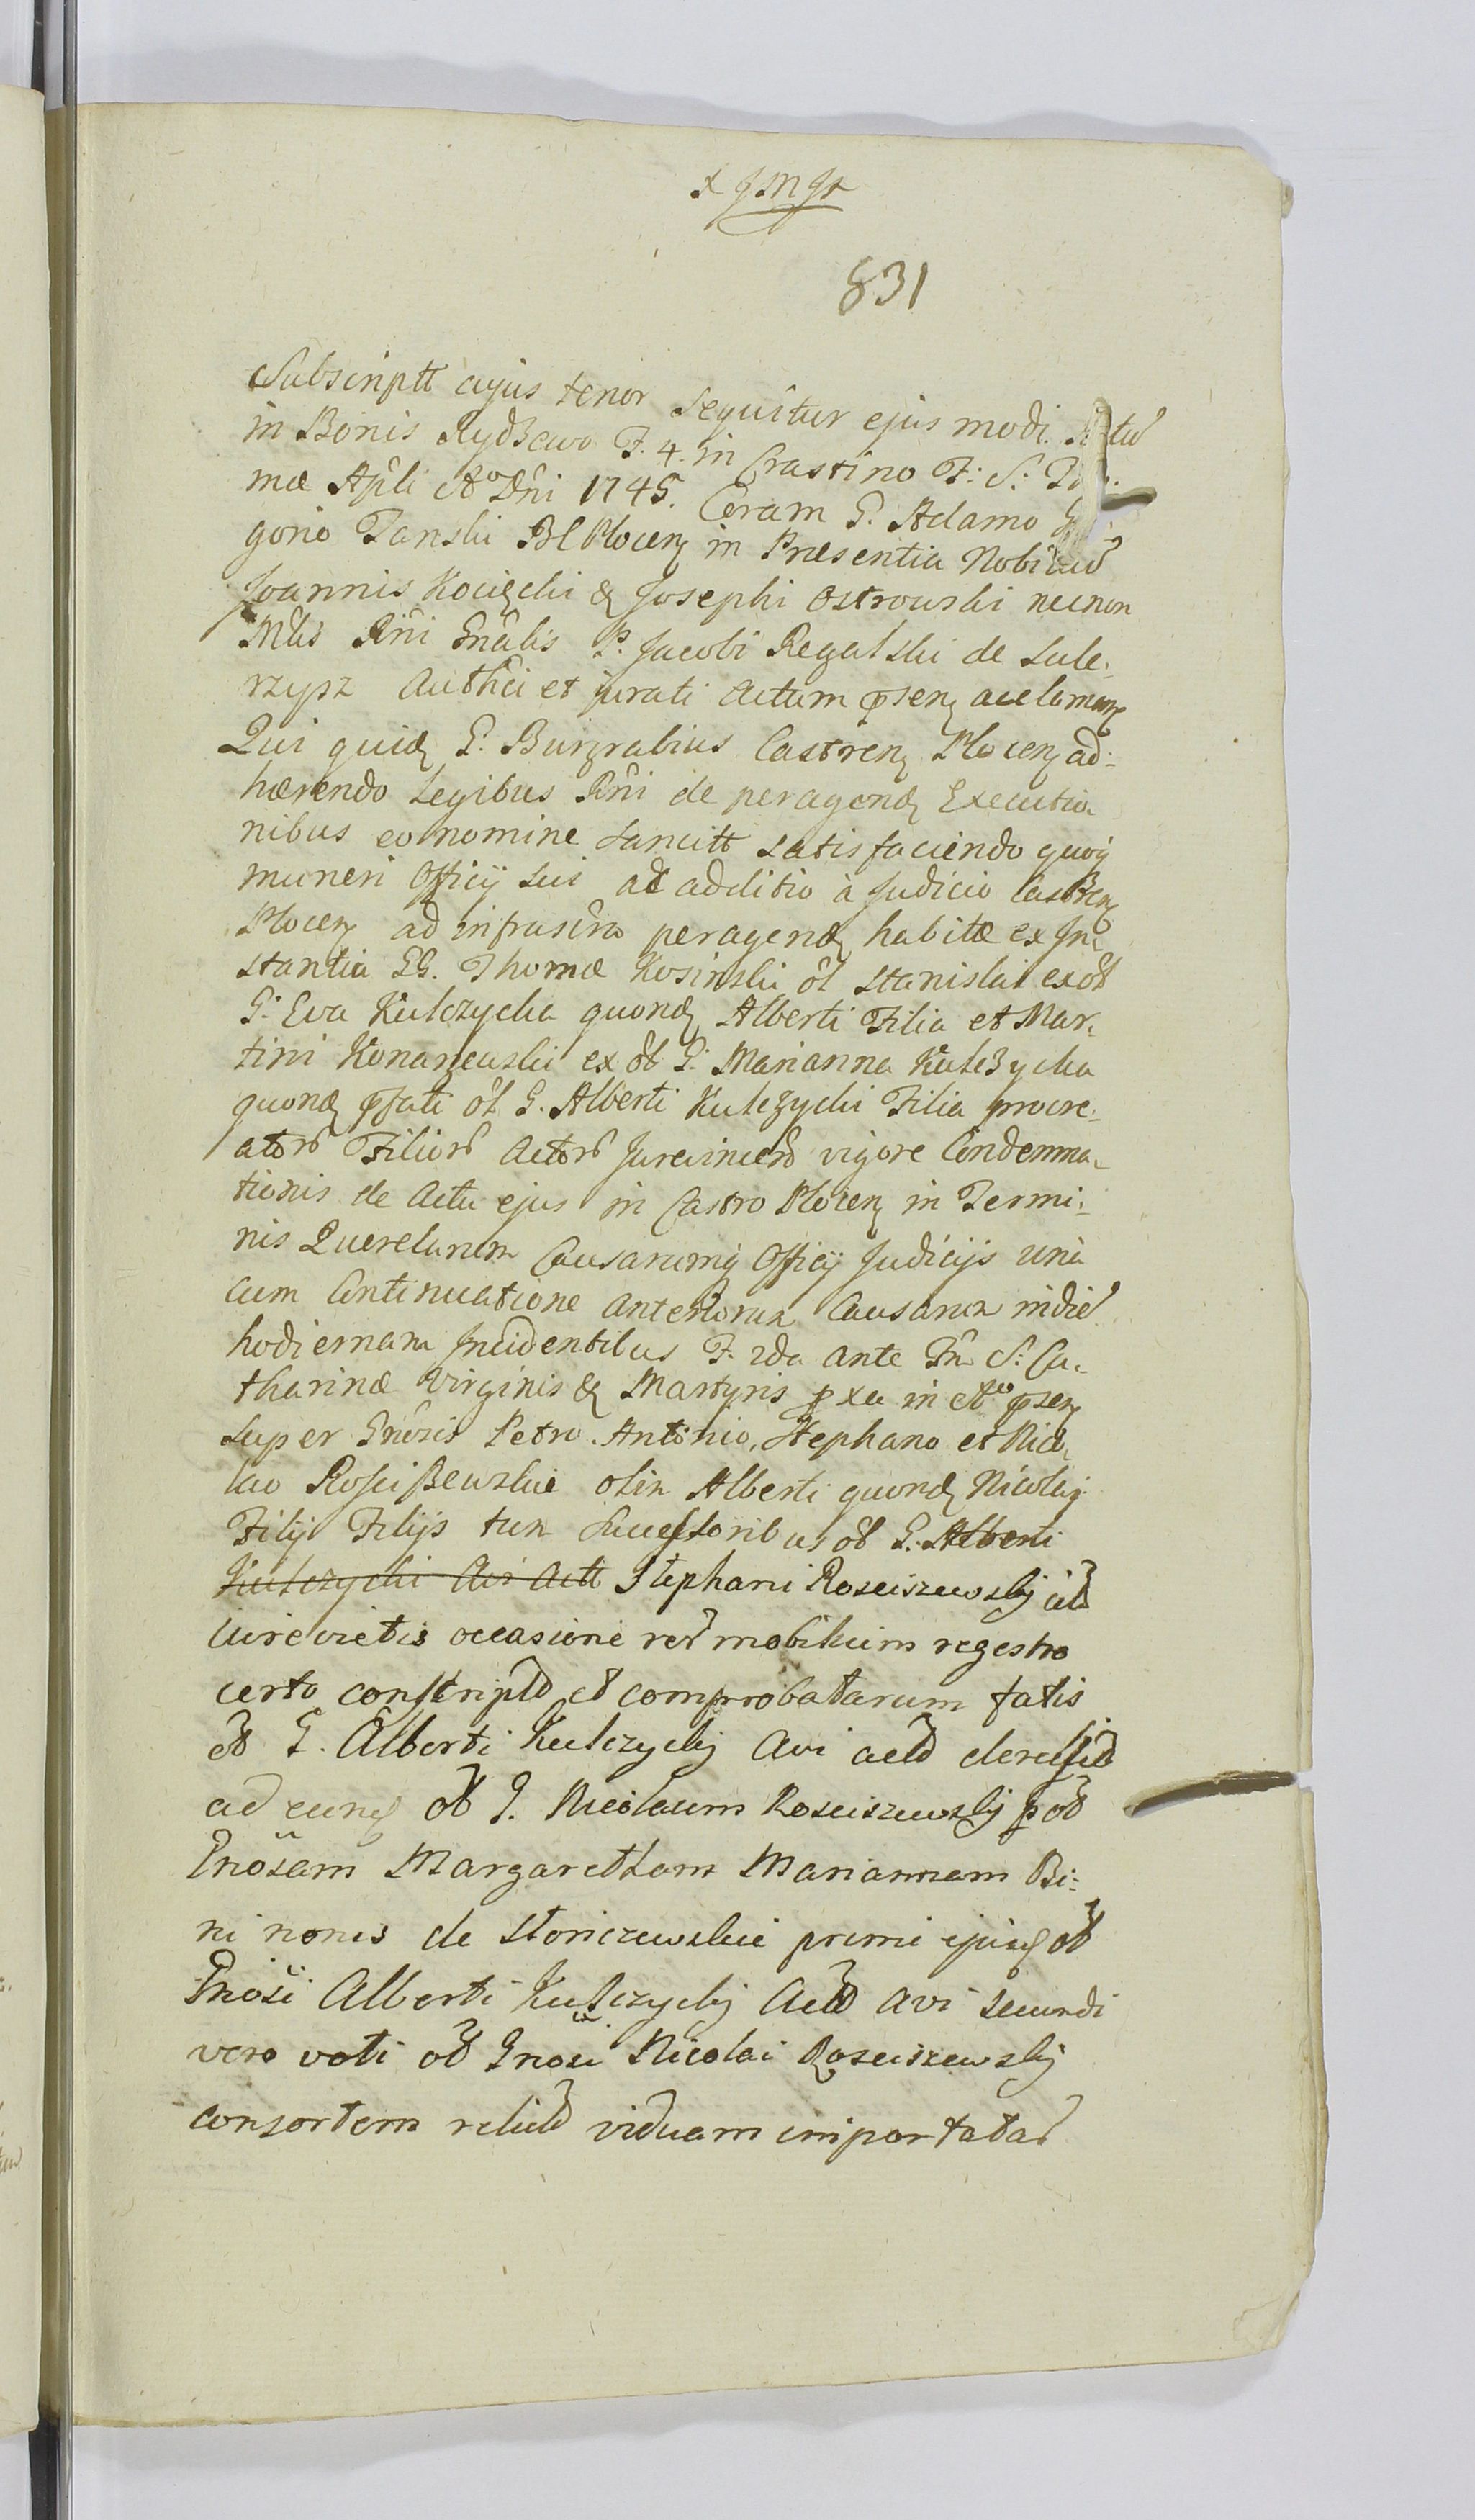 831
Subscriptt cujus tenor sequitur ejus modi.
in Bonis Rydzewo F. 4. in Crastino F: S:
mæ Apľi Aº Dñi 1745. Coram G. Adamo
gorio Tanski BC Plocen in Præsentia Nobiliũ
Joannis Kocięcki & Josephi Ostrowski necnon
Mľis Rñi Gnãlis P. Jacobi Regalski de Sule-
rzysz Authči et jurati Actum psen acclaman
Qui quid G. Burgrabius Castren Plocen ad-
hærendo Legibus Rñi de peragend Executio
nibus eo nomine Sancitt satisfaciendo quoq
muneri Officij sui ad additio à Judicio Castren
Plocen ad infrascra peragend habitæ ex In-
stantia GG. Thomæ Kosinski oľ Stanislai ex oľ
G. Eva Kulczycka quond Alberti Filia et Mar-
tini Konarzewski ex oľ G. Marianna Kulczycka
quond pfati oľ G. Alberti Kulczycki Filia procre-
ator Filior Actor Jurevincen vigore Condemna-
tionis de Actu ejus in Castro Plocen in Termi-
nis Querelarum Causarumq Officij Judicijs unà
cum Continuatione anteriorum Causarum in diẽ
hodiernam Incidentibus F. 2da ante Fm S: Ca-
tharinæ Virginis & Martyris pxa in Aº psen
super Gnosis Petro. Antonio, Stephano et Nico
lao Rościszewskie olim Alberti quond Nicolai
Filij Filijs tum Successoribus oľ G. Alberti
Kulczycki Avi Actt Stephani Rosciszewskij
iurevictis occasione rer mobilium regestro
certo conscript et comprobatarum fatis
oľ G. Alberti Kulczyckij Avi act derelict
ad eund oľ G. Nicolaum Rosciszewskij p oľ
Gnosam Margaretham Mariannam Bi-
ni nomis de Stoniczewskie primi ejusd oľ
Gnosi Alberti Kulczyckij Act avi secundi
vero voti oľ Gnosi Nicolai Rosciszewskij
consortem relict viduam importatar